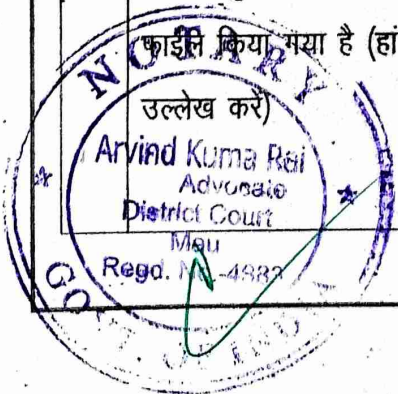 फाईल किया गया है (हां
उल्लेख करें)
NOTARY
Arvind Kuma Rai
Advocate
District Court
Mau
Regd. No.-4883
GOVT. OF INDIA